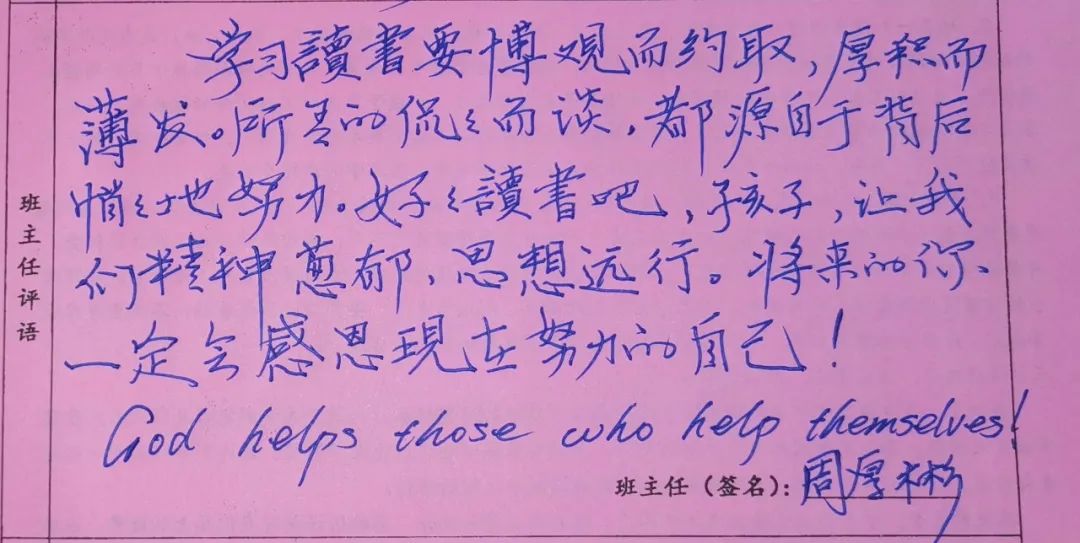 班主任评语
学习讀書要博观而约取,厚积而
薄发。所有的侃々而谈,都源自于背后
悄々地努力。好々讀書吧,孩子,让我
们精神葱郁、思想远行。将来的你、
一定会感恩現在努力的自己!
God helps those who help themselves!
班主任(签名):周厚彬